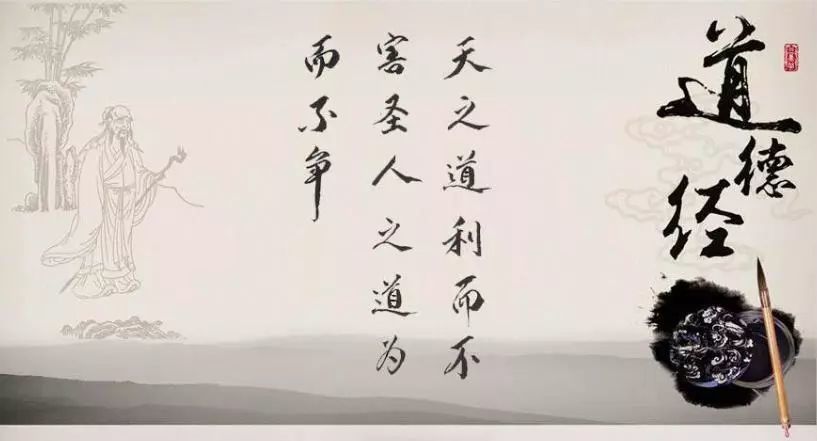 道德经
天之道利而不
害圣人之道为
而不争